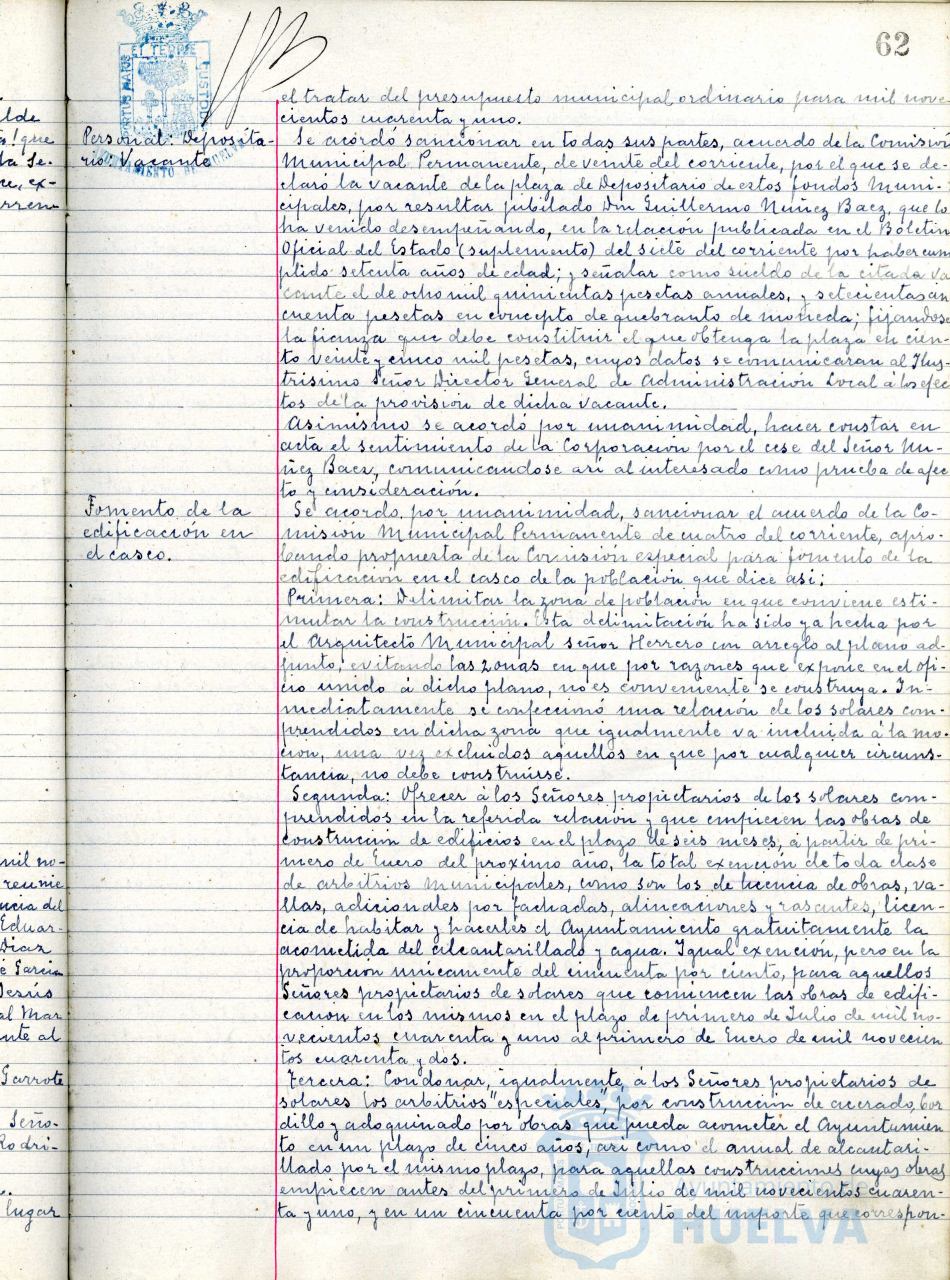 62
el tratar del presupuesto municipal ordinario para mil nove-
cientos cuarenta y uno.
Personal: Deposita-
rio: Vacante
Se acordó sancionar en todas sus partes, acuerdo de la Comisión
Municipal Permanente, de veinte del corriente, por el que se de-
claró la vacante de la plaza de Depositario de estos fondos Muni-
cipales, por resultar jubilado Don Guillermo Nuñez Baez, que lo
ha venido desempeñando, en la relación publicada en el Boletin
Oficial del Estado (suplemento) del siete del corriente por haber cum
plido setenta años de edad; y señalar como sueldo de la citada va
cante el de ocho mil quinientas pesetas anuales, y setecientas cin
cuenta pesetas en concepto de quebranto de moneda; fijandose
la fianza que debe constituir el que obtenga la plaza en cien-
to veinte y cinco mil pesetas, cuyos datos se comunicaran al Ilus-
trisimo Señor Director General de Administración Local á los efec
tos de la provisión de dicha vacante.
Asimismo se acordó por unanimidad, hacer constar en
acta el sentimiento de la Corporación por el cese del Señor Nu-
ñez Baez, comunicandose asi al interesado como prueba de afec
to y consideración.
Fomento de la
edificación en
el casco.
Se acordo por unanimidad, sancionar el acuerdo de la Co-
misión Municipal Permanente de cuatro del corriente, apro-
bando propuesta de la Comisión especial para fomento de la
edificación en el casco de la población que dice asi;
Primera: Delimitar la zona de población en que conviene esti-
mular la construcción. Esta delimitación ha sido ya hecha por
el Arquitecto Municipal señor Herrero con arreglo al plano ad-
junto, evitando las zonas en que por razones que expone en el ofi-
cio unido á dicho plano, no es conveniente se construya. In-
mediatamente se confeccionó una relación de los solares com-
prendidos en dicha zona que igualmente va incluida á la mo-
cion, una vez excluidos aquellos en que por cualquier circuns-
tancia, no debe construirse.
Segunda: Ofrecer á los Señores propietarios de los solares com-
prendidos en la referida relación y que empiecen las obras de
construccion de edificios en el plazo de seis meses, á partir de pri-
mero de Enero del proximo año, la total exención de toda clase
de arbitrios municipales, como son los de licencia de obras, va-
llas, adicionales por fachadas, alineaciones y rasantes, licen-
cia de habitar y hacerles el Ayuntamiento gratuitamente la
acometida del alcantarillado y agua. Igual exención, pero en la
proporción unicamente del cincuenta por ciento, para aquellos
Señores propietarios de solares que comiencen las obras de edifi-
cación en los mismos en el plazo de primero de Julio de mil no-
vecientos cuarenta y uno al primero de Enero de mil novecien
tos cuarenta y dos.
Tercera: Condonar, igualmente, á los Señores propietarios de
solares los arbitrios "especiales", por construcción de acerado, bor
dillo y adoquinado por obras que pueda acometer el Ayuntamien
to en un plazo de cinco años, asi como el anual de alcantari-
llado por el mismo plazo, para aquellas construcciones cuyas obras
empiecen antes del primero de Julio de mil novecientos cuaren-
ta y uno, y en un cincuenta por ciento del importe que correspon-
Ayuntamiento de
HUELVA